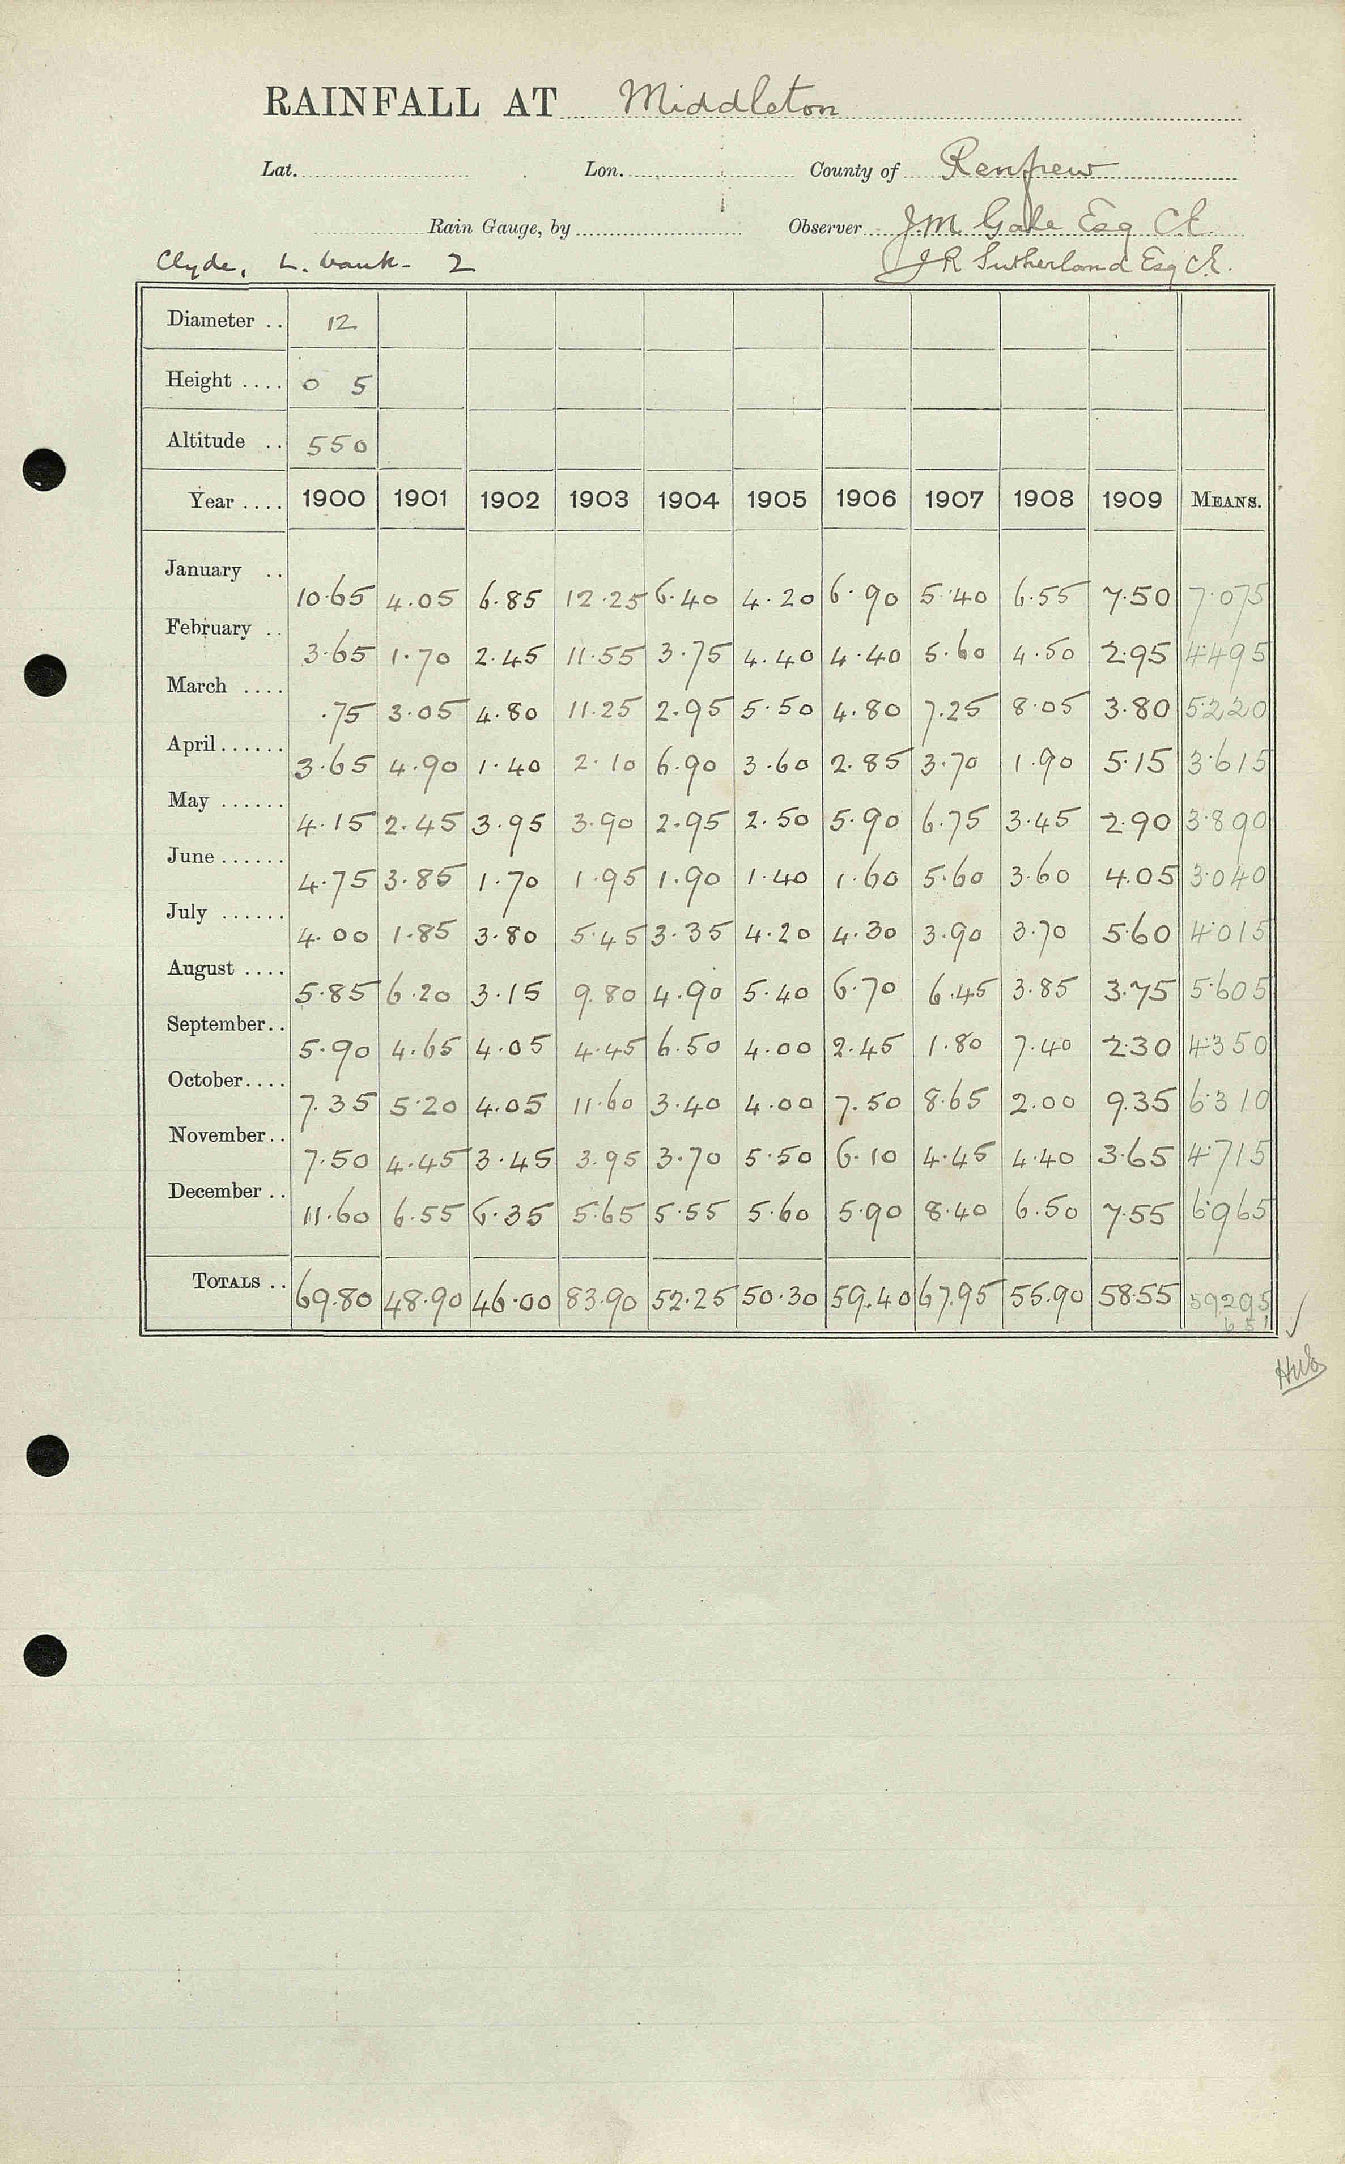 RAINFALL AT Middleton
Lat. Lon. County of Renfrew
Rain Gauge, by Observer J.M. Gale Esq C.E.
Clyde, L. bank - 2 J R Sutherland Esq C.E.
Diameter .. 12
Height .... 0 5
Altitude .. 550
Year .... 1900 1901 1902 1903 1904 1905 1906 1907 1908 1909 MEANS.
January .. 10.65 4.05 6.85 12.25 6.40 4.20 6.90 5.40 6.55 7.50 7.075
February .. 3.65 1.70 2.45 11.55 3.75 4.40 4.40 5.60 4.50 2.95 4.495
March .... .75 3.05 4.80 11.25 2.95 5.50 4.80 7.25 8.05 3.80 5.220
April ...... 3.65 4.90 1.40 2.10 6.90 3.60 2.85 3.70 1.90 5.15 3.615
May ...... 4.15 2.45 3.95 3.90 2.95 2.50 5.90 6.75 3.45 2.90 3.890
June ...... 4.75 3.85 1.70 1.95 1.90 1.40 1.60 5.60 3.60 4.05 3.040
July ...... 4.00 1.85 3.80 5.45 3.35 4.20 4.30 3.90 3.70 5.60 4.015
August .... 5.85 6.20 3.15 9.80 4.90 5.40 6.70 6.45 3.85 3.75 5.605
September .. 5.90 4.65 4.05 4.45 6.50 4.00 2.45 1.80 7.40 2.30 4.350
October .... 7.35 5.20 4.05 11.60 3.40 4.00 7.50 8.65 2.00 9.35 6.310
November .. 7.50 4.45 3.45 3.95 3.70 5.50 6.10 4.45 4.40 3.65 4.715
December .. 11.60 6.55 6.35 5.65 5.55 5.60 5.90 8.40 6.50 7.55 6.965
TOTALS .. 69.80 48.90 46.00 83.90 52.25 50.30 59.40 67.95 55.90 58.55 59.295 ✓
651